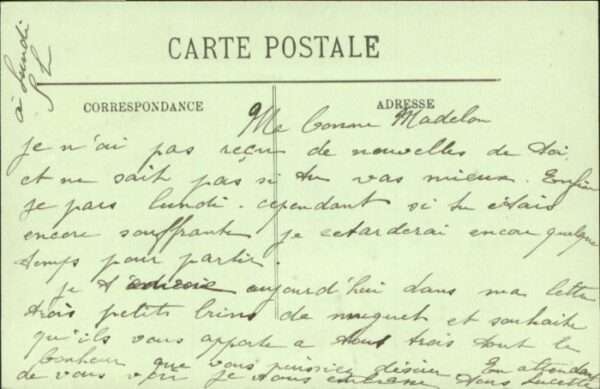 à lundi
CARTE POSTALE
CORRESPONDANCE
ADRESSE
Ma bonne Madelon
je n'ai pas reçu de nouvelles de toi,
et ne sait pas si tu vas mieux. Enfin
je pars lundi. cependant si tu étais
encore souffrante je retarderai encore quelque
temps pour partir.
je t'envoie aujourd'hui dans ma lettre
trois petits brins de muguet et souhaite
qu'ils vous apporte a tous trois tout le
bonheur que vous puissiez désirer. En attendant
de vous voir je vous embrasse tous